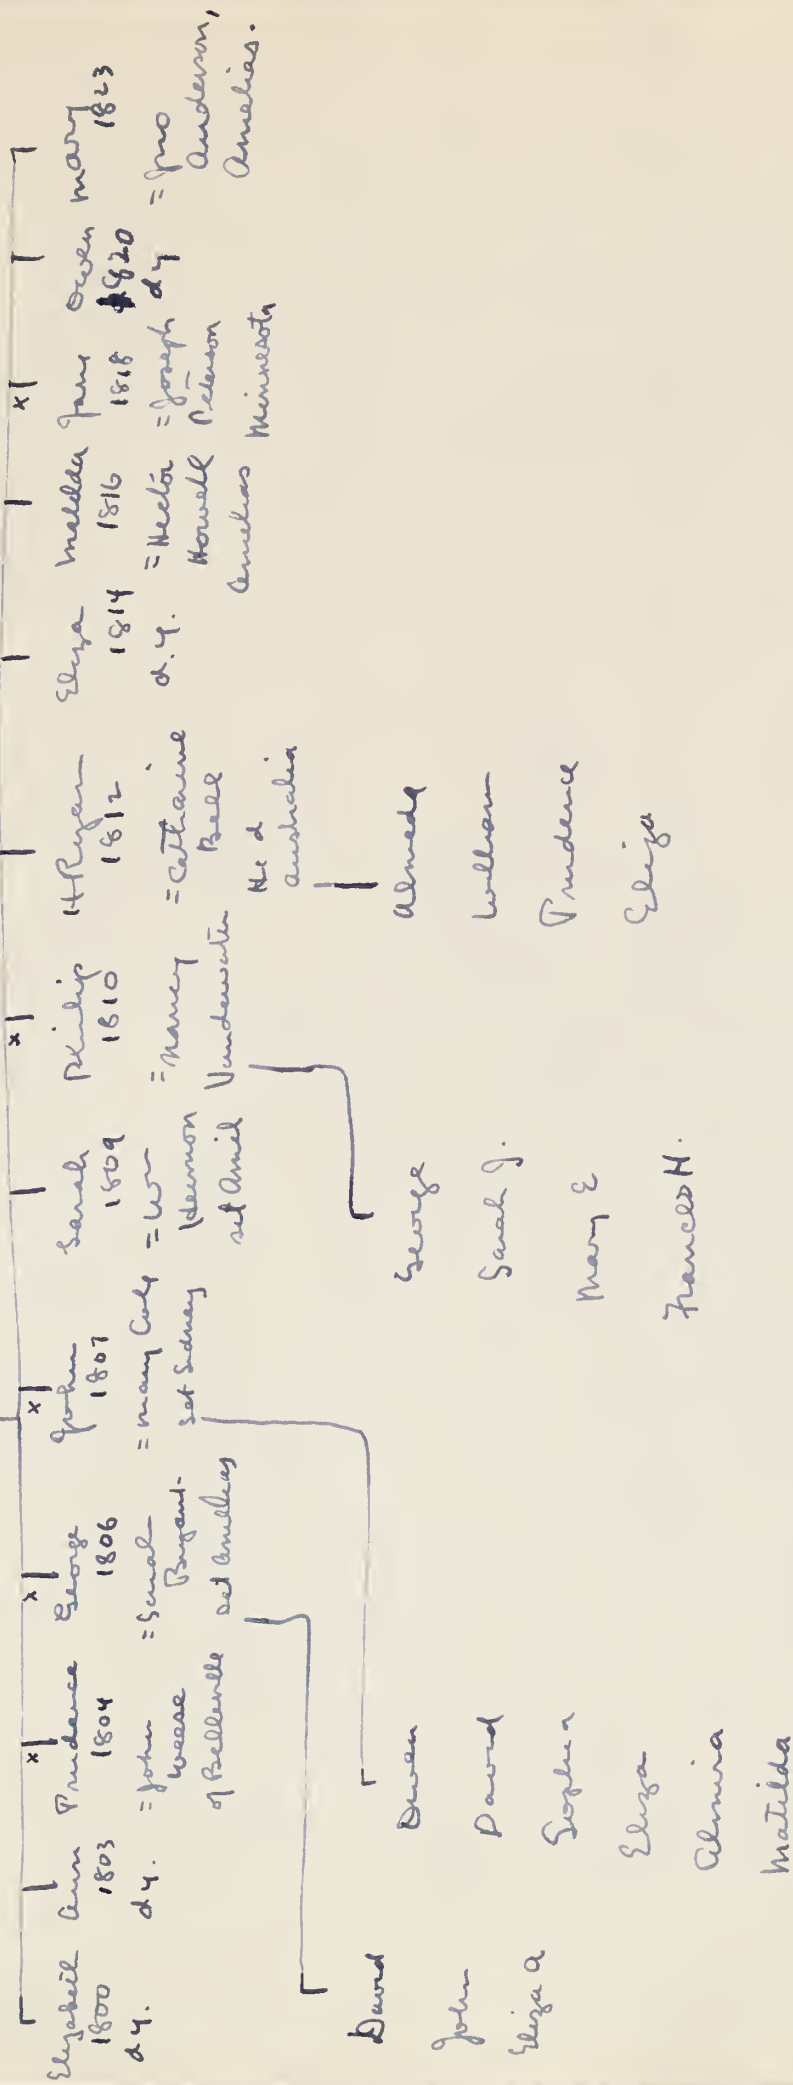 Elizabeth
1800
d y.
Ann
1803
d y.
Prudence
1804
= John
Weese
of Belleville
x
George
1806
= Sarah
Bryant
set Amelias
x
John
1807
= Mary Cole
set Sidney
x
Sarah
1809
= Wm
Hermon
set Amel
Philip
1810
= Nancy
Vandewater
x
H Ryan
1812
= Catharine
Bell
He d
Australia
Eliza
1814
d. y.
Matilda
1816
= Hector
Howell
Amelias
Jane
1818
= Joseph
Peterson
Minnesota
x
Owen
1820
d y
Mary
1823
= Jno
Anderson,
Amelias.
David
John
Eliza A
Owen
David
Sophia
Eliza
Almira
Matilda
George
Sarah J.
Mary E
Frances H.
Almeda
William
Prudence
Eliza
x